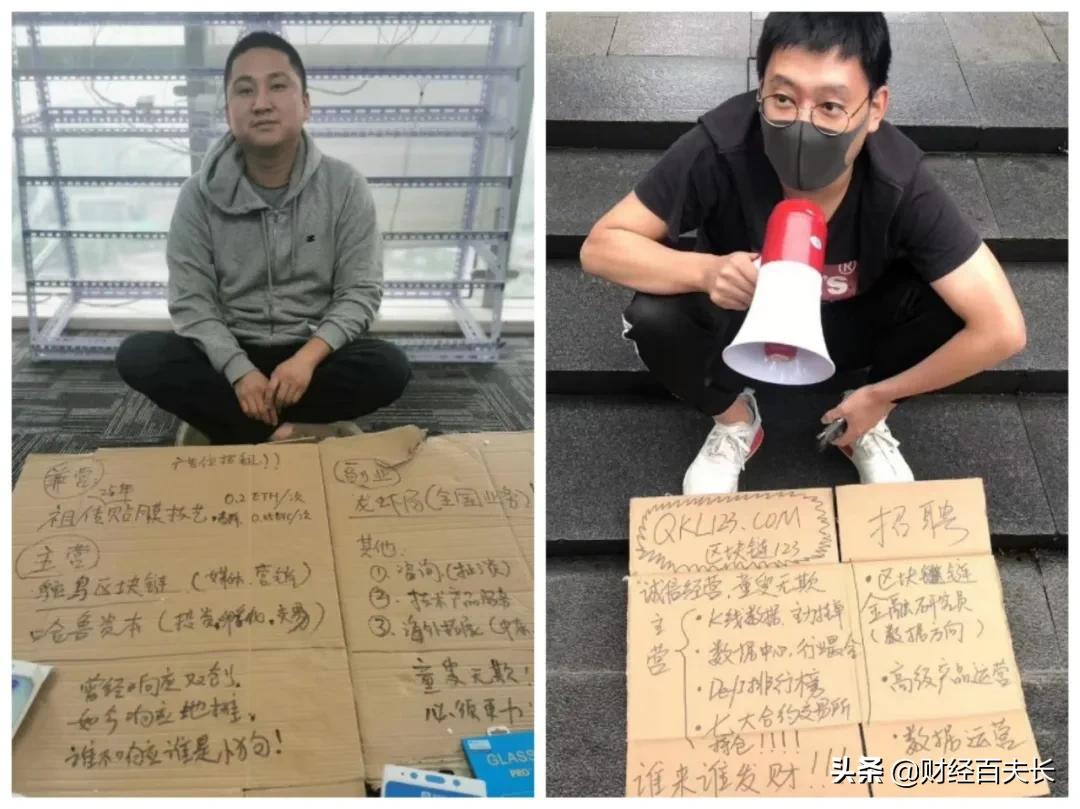 广告位招租!!
兼营
25年
祖传贴膜技艺
0.2 ETH/次
主营
鸵鸟区块链(媒体、营销)
哈鲁资本(投资,孵化,交易)
曾经响应双创,
如今响应地摊,
谁不响应谁是小狗!
副业
龙虾局(全国业务)
其他:
①咨询(扯淡)
②.技术产品服务
③.海外拓展(中东
童叟无欺!
必须更力
GLASS
PRO
QKL123.COM
区块链123
诚信经营,童叟无欺
主营
·K线数据、主力挂单
·数据中心,行业最全
·Defi排行榜
·长大合约交易所
钱包!!!!
谁来谁发财!!!
招聘
·区块链链
金融研究员
(数据方向)
·高级产品运营
·数据运营
®
TS
头条 @财经百夫长